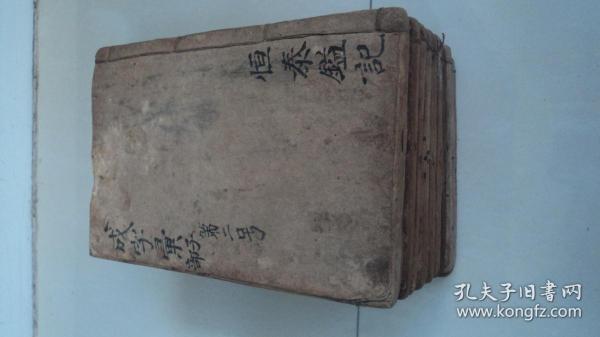 恒泰鎰記
成字彙
部子第二号
孔夫子旧書网
www.kongfz.com